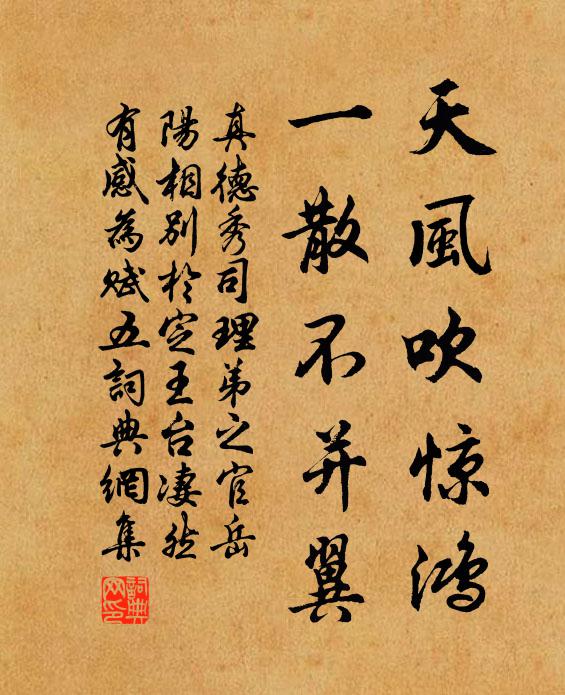 天風吹惊鸿
一散不并翼
真德秀司理弟之官岳
陽相别於定王台凄然
有感為賦五詞典網集
詞典
网印